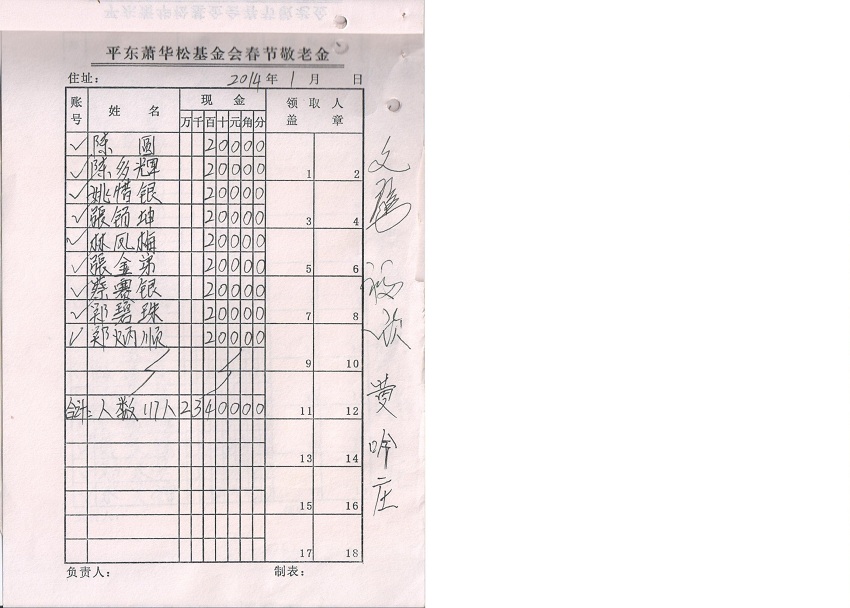 平东萧华松基金会春节敬老金
住址： 2014年 1月 日
账号 姓 名 现 金 领 取 人 盖 章
万 千 百 十 元 角 分
✓ 陈 圆 20000
✓ 陈乡辉 20000 1 2
✓ 姚惜银 20000
✓ 張锦坤 20000 3 4
✓ 林凤梅 20000
✓ 張金弟 20000 5 6
✓ 蔡赛银 20000
✓ 郑碧珠 20000 7 8
✓ 郑炳顺 20000
9 10
合计：人数117人 2340000 11 12
13 14
15 16
17 18
负责人： 制表：